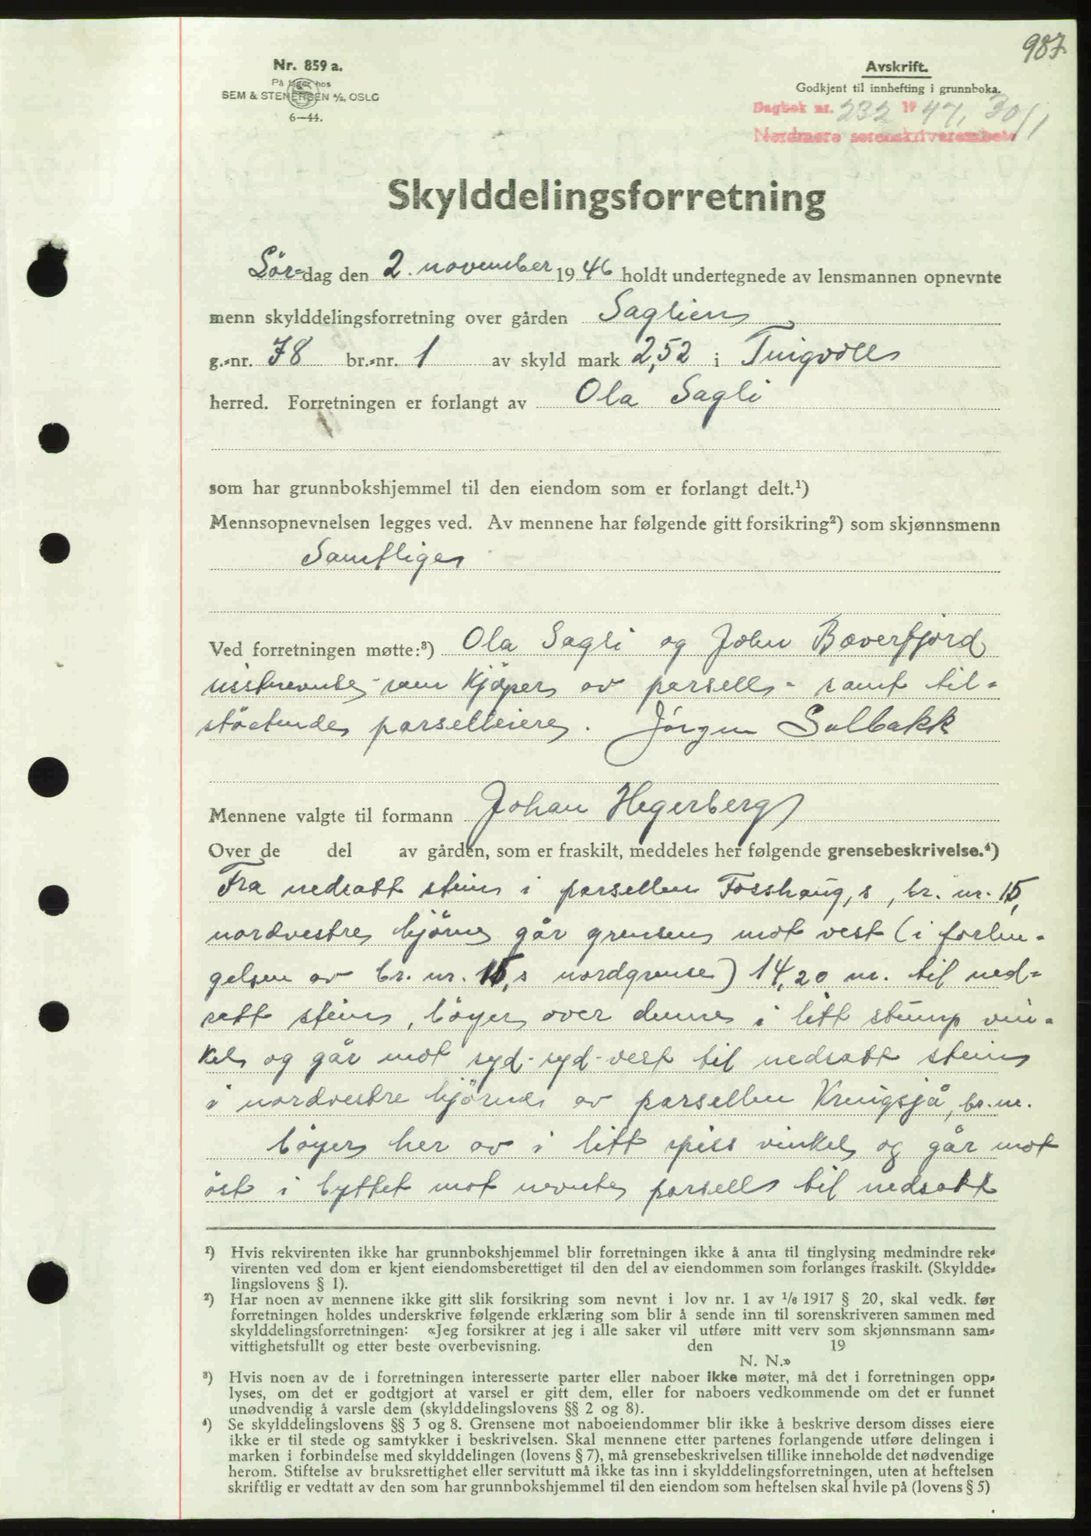 987.
Nr. 859 a.
På lager hos
SEM & STENERSEN A/S, OSLO
6—44.
Avskrift.
Godkjent til innhefting i grunnboka.
Dagbok nr. 232 19 47, 30/1
Nordmøre sorenskriverembete
Skylddelingsforretning
Lör-dag den 2. november 1946 holdt undertegnede av lensmannen opnevnte
menn skylddelingsforretning over gården Saglien
g.-nr. 78 br.-nr. 1 av skyld mark 2,52 i Tingvoll
herred. Forretningen er forlangt av Ola Sagli
som har grunnbokshjemmel til den eiendom som er forlangt delt.¹)
Mennsopnevnelsen legges ved. Av mennene har følgende gitt forsikring²) som skjønnsmenn
Samtlige
Ved forretningen møtte:³) Ola Sagli og John Bæverfjord
sistnevnte som kjöper av parsell - samt til-
stöctende parselleiere. Jörgen Solbakk
Mennene valgte til formann Johan Hegerberg
Over de del av gården, som er fraskilt, meddeles her følgende grensebeskrivelse.⁴)
Fra nedsatt stein i parsellen Fosshaug,s, br. nr. 15,
nordvestre hjörne går grensen mot vest (i forlen-
gelsen av br. nr. 15,s nordgrense) 14,20 m. til ned-
satt stein, böyer over denne i litt stump vin-
kel og går mot syd-syd-vest til nedsatt stein
i nordvestre hjörne av parsellen Kringsjå, br. nr.
böyer her av i litt spiss vinkel og går mot
öst i byttet mot nevnte parsell til nedsatt
¹) Hvis rekvirenten ikke har grunnbokshjemmel blir forretningen ikke å anta til tinglysing medmindre rek-
virenten ved dom er kjent eiendomsberettiget til den del av eiendommen som forlanges fraskilt. (Skyldde-
lingslovens § 1).
²) Har noen av mennene ikke gitt slik forsikring som nevnt i lov nr. 1 av 1/6 1917 § 20, skal vedk. før
forretningen holdes underskrive følgende erklæring som blir å sende inn til sorenskriveren sammen med
skylddelingsforretningen: «Jeg forsikrer at jeg i alle saker vil utføre mitt verv som skjønnsmann sam-
vittighetsfullt og etter beste overbevisning. den 19
N. N.»
³) Hvis noen av de i forretningen interesserte parter eller naboer ikke møter, må det i forretningen opp-
lyses, om det er godtgjort at varsel er gitt dem, eller for naboers vedkommende om det er funnet
unødvendig å varsle dem (skylddelingslovens §§ 2 og 8).
⁴) Se skylddelingslovens §§ 3 og 8. Grensene mot naboeiendommer blir ikke å beskrive dersom disses eiere
ikke er til stede og samtykker i beskrivelsen. Skal mennene etter partenes forlangende utføre delingen i
marken i forbindelse med skylddelingen (lovens § 7), må grensebeskrivelsen tillike inneholde det nødvendige
herom. Stiftelse av bruksrettighet eller servitutt må ikke tas inn i skylddelingsforretningen, uten at heftelsen
skriftlig er vedtatt av den som har grunnbokshjemmel til den eiendom som heftelsen skal hvile på (lovens § 5)